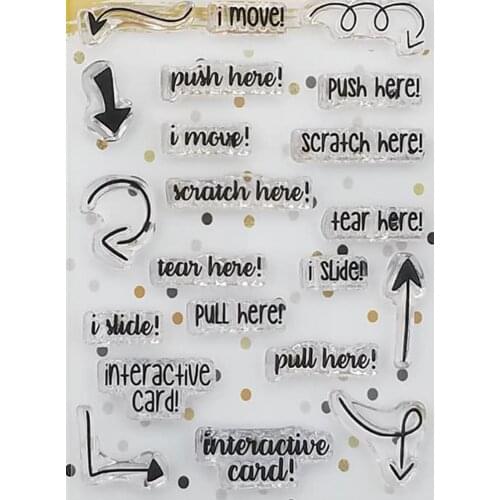 i move!
push here!
push here!
i move!
scratch here!
scratch here!
tear here!
tear here!
i slide!
pull here!
i slide!
pull here!
interactive
card!
interactive
card!